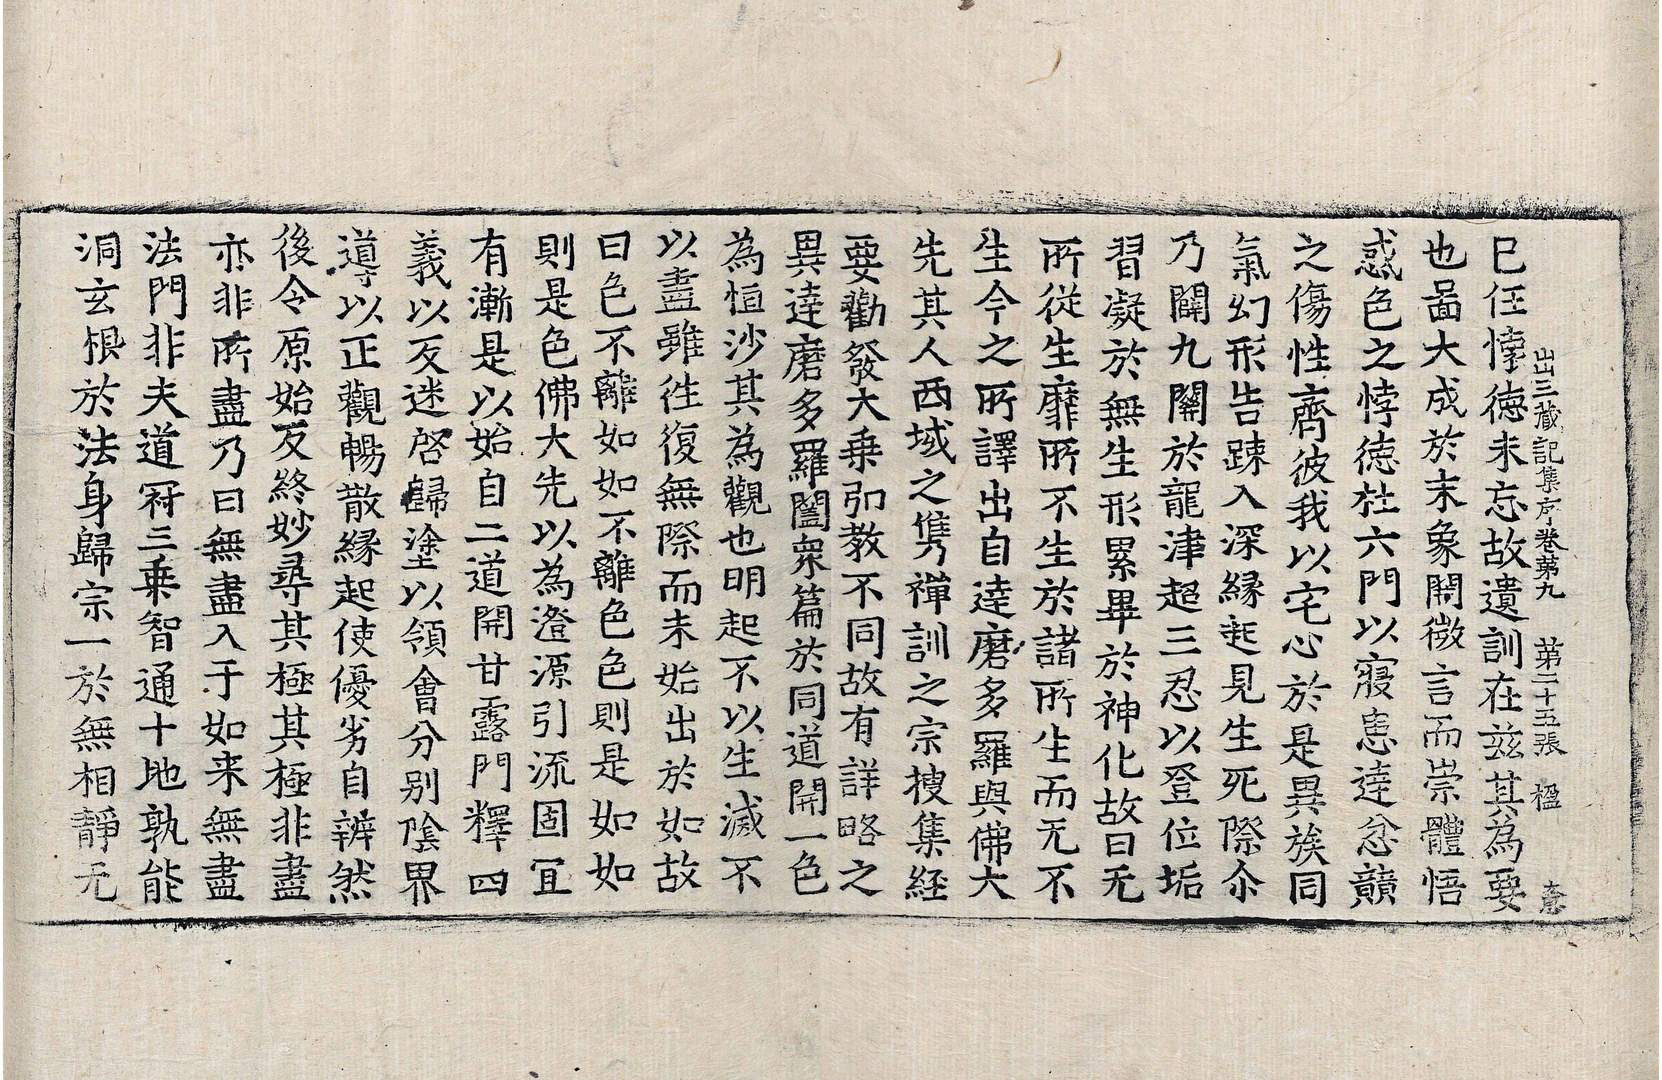 出三藏記集序卷苐九　苐二十五張　楹
巳任悖德未忘故遺訓在茲其為要
也啚大成於末象開微言而崇體悟
惑色之悖德杜六門以寢患達忿競
之傷性齊彼我以宅心於是異族同
氣幻形告踈入深縁起見生死際尒
乃闢九關於龍津超三忍以登位垢
習凝於無生形累畢於神化故曰无
所從生靡所不生於諸所生而无不
生今之所譯出自達磨多羅與佛大
先其人西域之儁禪訓之宗搜集経
要勸發大乗弘教不同故有詳略之
異達磨多羅闔衆篇於同道開一色
為恒沙其為觀也明起不以生滅不
以盡雖徃復無際而未始出於如故
曰色不離如如不離色色則是如如
則是色佛大先以為澄源引流固冝
有漸是以始自二道開甘露門釋四
義以反迷啓歸塗以領會分別陰界
導以正觀暢散縁起使優劣自辨然
後令原始反終妙尋其極其極非盡
亦非所盡乃曰無盡入于如来無盡
法門非夫道冠三乗智通十地孰能
洞玄根於法身歸宗一於無相靜无